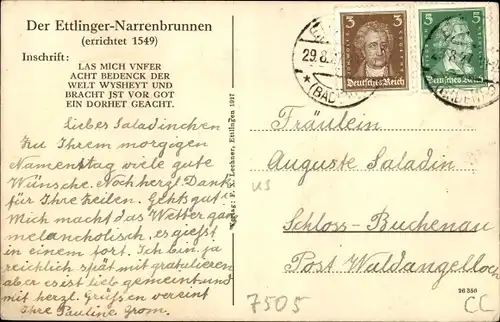 Der Ettlinger-Narrenbrunnen
(errichtet 1549)
Inschrift:
LAS MICH VNFER
ACHT BEDENCK DER
WELT WYSHEYT UND
BRACHT JST VOR GOT
EIN DORHET GEACHT.
Liebes Saladinchen
Zu Ihrem morgigen
Namenstag viele gute
Wünsche. Noch hergl. Dank
für Ihre Zeilen. Gehts gut?
Mich macht das Wetter ganz
melancholisch, es giesst
in einem fort. Ich bin ja
reichlich spät mit gratulieren
aber es ist lieb gemeint und
mit herzl. Grüßen vereint
Ihre Pauline Grom.
Verlag: F. X. Lechner, Ettlingen 1917
3 3
Deutsches Reich
5 5
Deutsches Reich
29.8.
(BADEN)
Fräulein
Auguste Saladin
Schloss-Buchenau
Post Waldangelloch
us
7505
26 350
CC